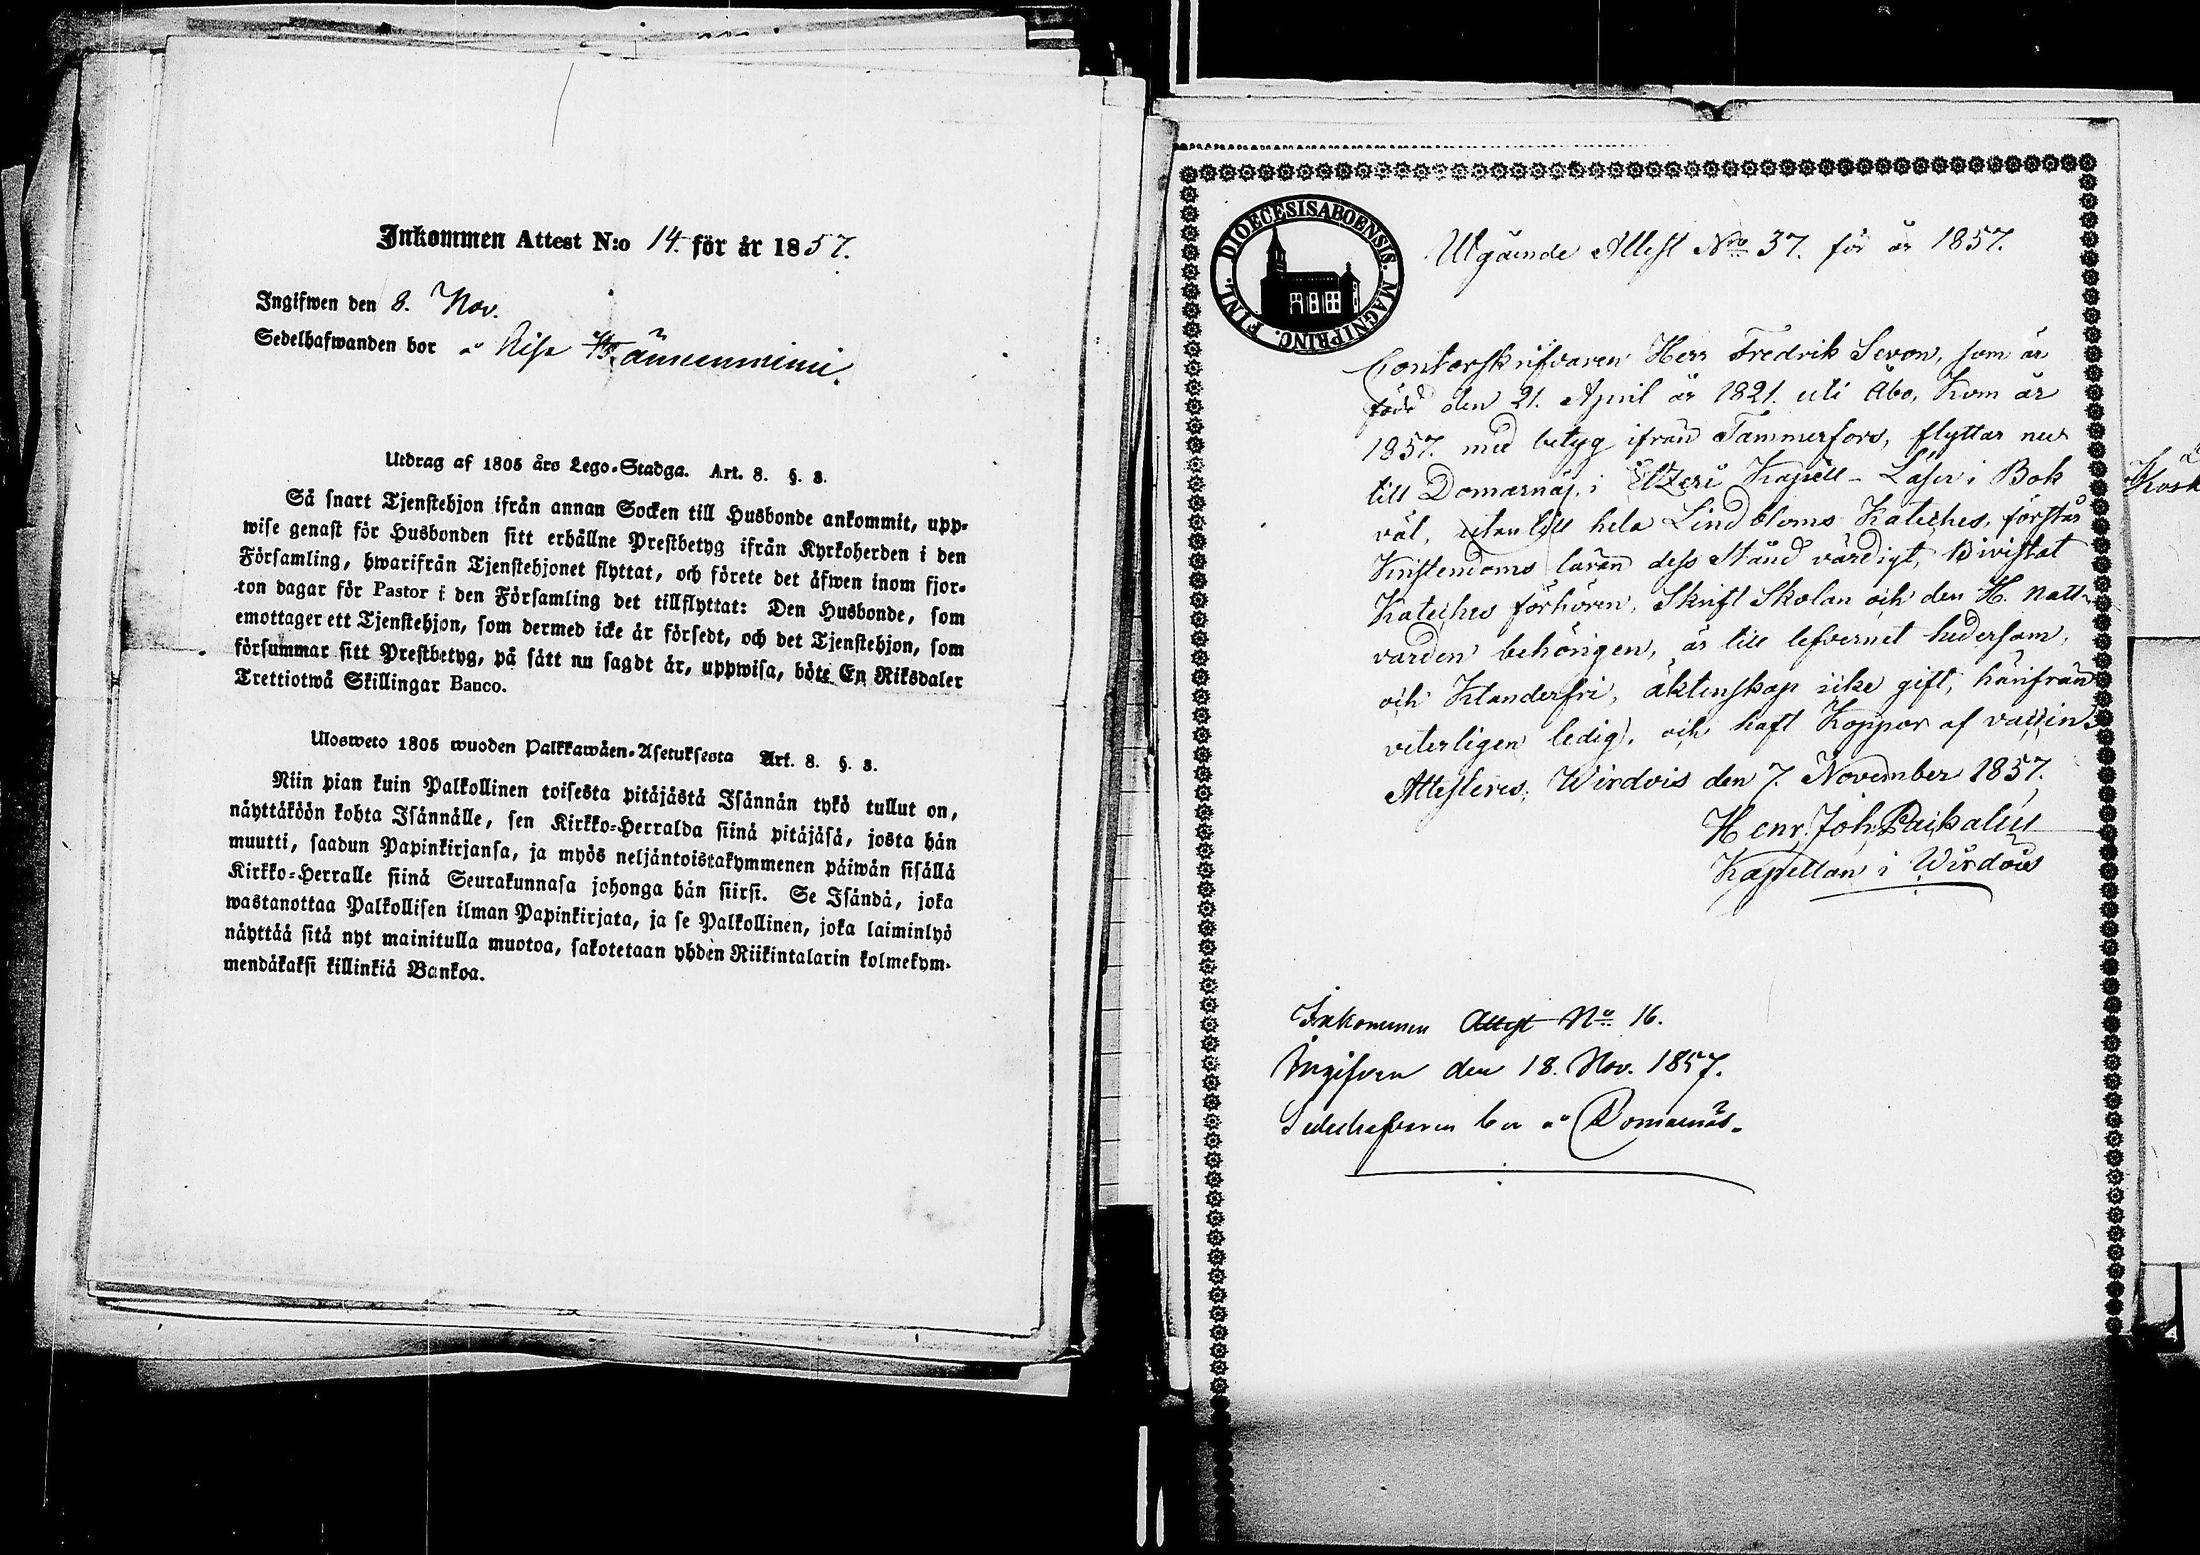 Inkommen Attest N:o 14. för år 1857.
Ingifwen den 8. Nov.
Sedelhafwanden bor å
Utdrag af 1805 års Lego-Stadga. Art. 8. §. 3.
Så snart Tjenstehjon ifrån annan Socken till Husbonde ankommit, upp-
wise genast för Husbonden sitt erhållne Prestbetyg ifrån Kyrkoherden i den
Församling, hwarifrån Tjenstehjonet flyttat, och förete det äfwen inom fjor-
ton dagar för Pastor i den Församling det tillflyttat: Den Husbonde, som
emottager ett Tjenstehjon, som dermed icke är försedt, och det Tjenstehjon, som
försummar sitt Prestbetyg, på sätt nu sagdt är, uppwisa, böte En Riksdaler
Trettiotwå Skillingar Banco.
Ulosweto 1805 wuoden Palkkawäen-Asetuksesta Art. 8. §. 3.
Niin pian kuin Palkollinen toisesta pitäjästä Isännän tykö tullut on,
näyttäköön kohta Isännälle, sen Kirkko-Herralda siinä pitäjäsä, josta hän
muutti, saadun Papinkirjansa, ja myös neljäntoistakymmenen päiwän sisällä
Kirkko-Herralle siinä Seurakunnasa johonga hän siirsi. Se Isändä, joka
wastanottaa Palkollisen ilman Papinkirjata, ja se Palkollinen, joka laiminlyö
näyttää sitä nyt mainitulla muotoa, sakotetaan yhden Riikintalarin kolmekym-
mendäkaksi killinkiä Bankoa.
DIOECESIS ABOENSIS. MAGNI PRINC. FINL.
Utgående Attest Nro 37. för år 1857.
Contorskrifvaren Herr Fredrik Sevon, som är
född den 21. April år 1821. uti Åbo, Kom år
1857. med betyg ifrån Tammerfors, flyttar nu
till Domarnäs, i Etzeri Kapell - Läser i Bok
väl, utantill hela Lindbloms Kateches, förstår
Kristendoms läran dess Stånd värdigt, Bivistat
Kateches förhören, Skrift Skolan och den H. Natt-
varden behörigen, är till lefvernet hedersam,
och Klanderfri, äktenskap icke gift, härifrån
veterligen ledig, och haft Koppor af vaccin.
Attesteres, Wirdois den 7. November 1857.
Henr. Joh.
Kapellan i Wirdois
Inkommen Attest No 16.
Ingifven den 18. Nov. 1857.
Sedelhafvaren bor å Domarnäs.